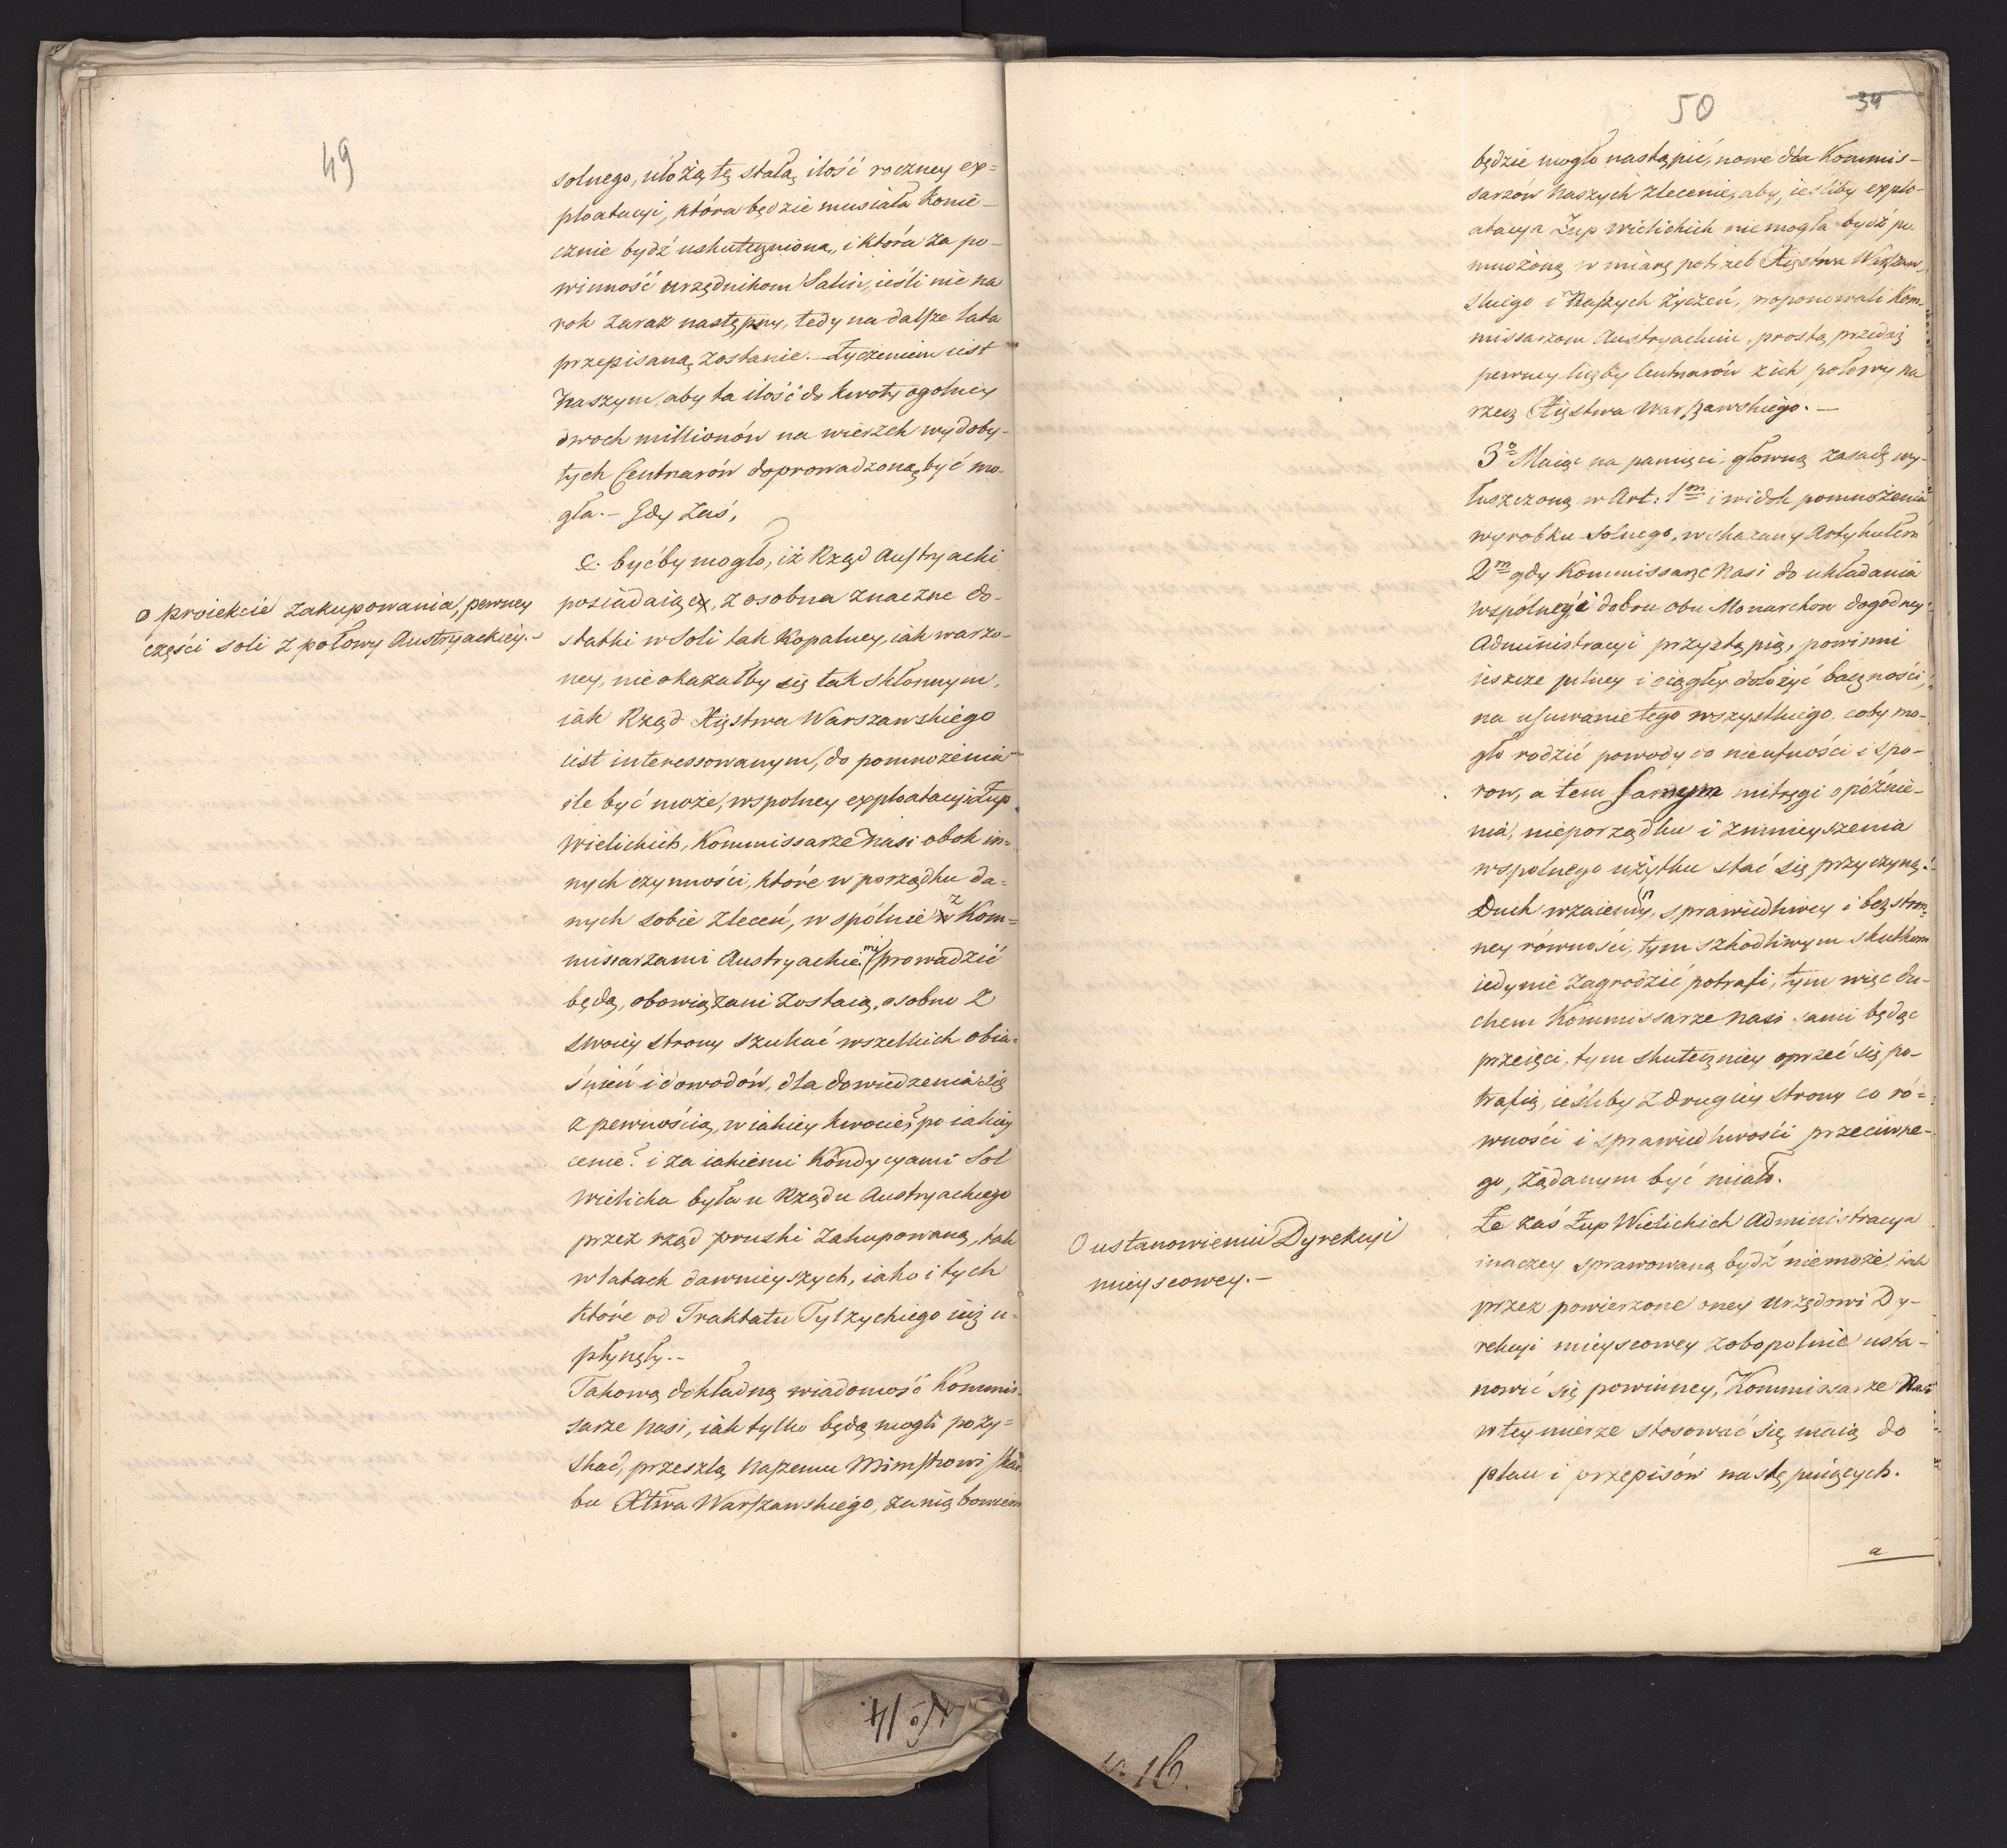 49
solnego, ułożą tę stałą ilość roczney ex=
ploatacyi, która będzie musiała konie-
cznie bydź uskutecznioną, i która za po-
winność urzędnikom Salin, ieśli nie na
rok zaraz następny, tedy na dalsze lata
przepisaną zostanie. - Życzeniem iest
Naszym, aby ta ilość do kwoty ogolney
dwoch millionów na wierzch wydoby-
tych Centnarów doprowadzoną być mo-
gła. - Gdy Zaś,
o proiekcie zakupowania, pewney
części soli z połowy Austryackiey. -
c. być by mogło, iż Rząd Austryacki
posiadaiący, z osobna znaczne do-
statki w Soli tak Kopalney, iak warzo-
ney, nie okazałby się tak skłonnym,
iak Rząd Xięstwa Warszawskiego
iest interessowanym, do pomnożenia
ile być może, wspolney exploatacyi Żup
Wielickich, Kommissarze Nasi obok in=
nych czynności, które w porządku da=
nych sobie zleceń, wspólnie z Kom=
missarzami Austryackiemi prowadzić
będą, obowiązani zostaią, osobno z
swoiey strony szukać wszelkich obia=
śnień i dowodów, dla dowiedzenia się
z pewnością, w iakiey kwocie? po iakiey
cenie? i za iakiemi Kondycyami Sol
Wielicka była u Rządu Austryackiego
przez rząd pruski Zakupowaną, tak
w latach dawnieyszych, iako i tych
które od Traktatu Tylżyckiego iuż u=
płynęły. -
Takową dokładną wiadomość Kommis-
sarze Nasi, iak tylko będą mogli pozy=
skać, przeszlą Naszemu Ministrowi Skar=
bu Xtwa Warszawskiego, za nią bowiem
50 34
będzie mogło nastąpić, nowe dla Kommis-
sarzów Naszych zlecenie, aby, ieśliby explo-
atacya Żup Wielickich nie mogła bydź po
mnożoną w miarę potrzeb Xięstwa Warszaw
skiego i Naszych życzeń, proponowali Kom-
missarzom Austryackim, prostą przedaż
pewney liczby Centnarów z ich połowy na
rzecz Xięstwa Warszawskiego. -
3o Maiąc na pamięci, głowną zasadę wy-
łuszczoną w Art: 1m i widok pomnożenia
wyrobku Solnego, wskazany Artykułem
2m gdy Kommissarze Nasi do układania
wspólney i dobru obu Monarchow dogodney
Administracyi przystąpią, powinni
ieszcze pilney i ciągłey dołożyć baczności,
na usuwanie tego wszystkiego, coby mo-
gło rodzić powody do nieufności i spo-
row, a tem samym mitręgi opóźnie-
nia, nieporządku i zmnieyszenia
wspolnego użytku stać się przyczyną. -
Duch wzaiemney, sprawiedliwey i bezstron
ney równości, tym szkodliwym skutkom
iedynie zagrodzić potrafi, tym więc du-
chem Kommissarze Nasi sami będąc
przeięci, tym skuteczniey oprzeć się po-
trafią, ieśliby z drugiey strony co ró=
wności i sprawiedliwości przeciwne-
go, żądanym być miało.
O ustanowieniu Dyrekcyi
mieyscowey. -
Że zaś Żup Wielickich Administracya
inaczey sprawowaną bydź nie może, iak
przez powierzone oney Urzędowi Dy-
rekcyi mieyscowey zobopolnie usta-
nowić się powinney, Kommissarze Nasi
w tey mierze stosować się maią do
planu i przepisów następuiących.
a
No 14.
16.